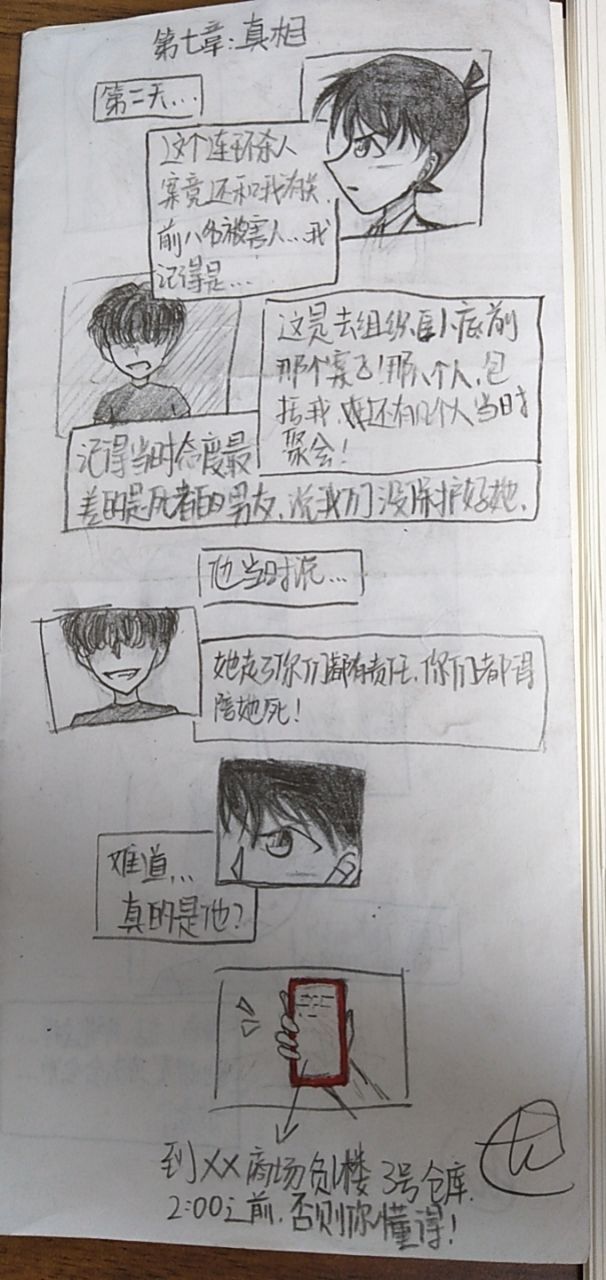 第七章:真相
第二天...
这个连环杀人
案竟还和我有关.
前八名被害人...我
记得是...
这是去组织卧底前
那个案子!那八个人,包
括我,还有几个人当时
聚会!
记得当时态度最
差的是死者的男友,说我们没保护好她.
他当时说...
她死了你们都有责任,你们都得
陪她死!
难道...
真的是他?
到XX商场负1楼 3号仓库.
2:00之前,否则你懂得!